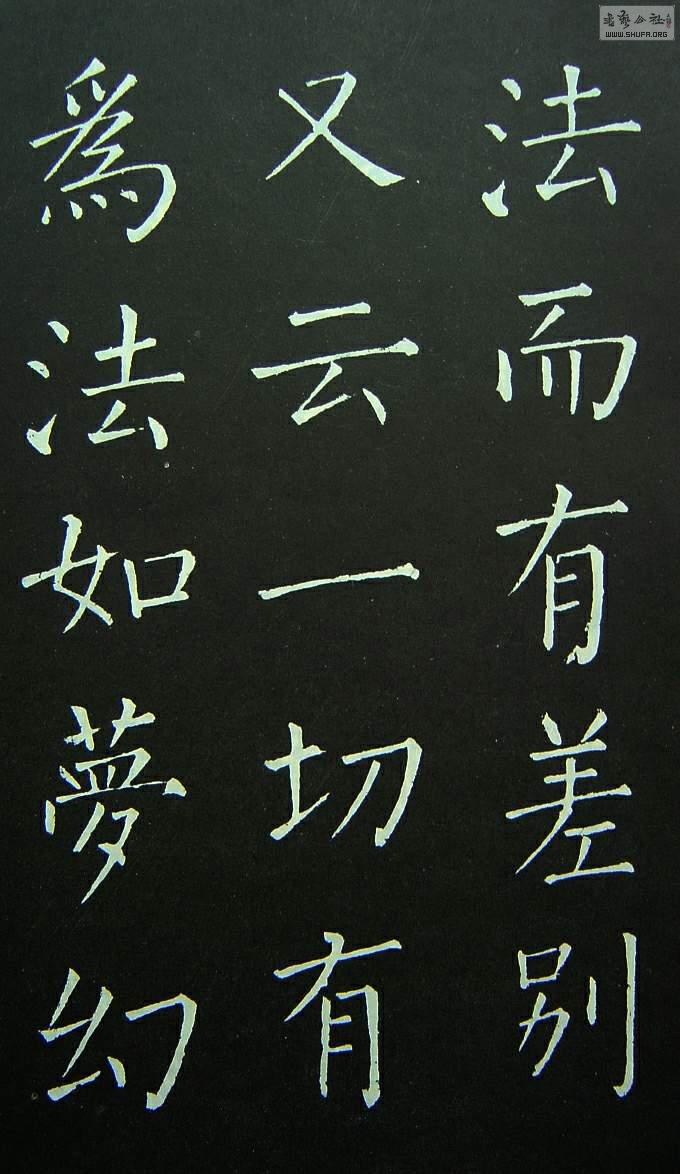 法而有差别
又云一切有
為法如夢幻
書藝公社
WWW.SHUFA.ORG